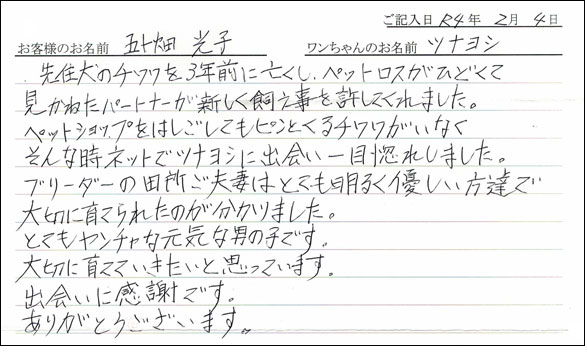 ご記入日 R4年 2月 4日
お客様のお名前 五十畑 光子 ワンちゃんのお名前 ツナヨシ
先住犬のチワワを3年前に亡くし、ペットロスがひどくて
見かねたパートナーが新しく飼う事を許してくれました。
ペットショップをはしごしてもピンとくるチワワがいなく
そんな時ネットでツナヨシに出会い一目惚れしました。
ブリーダーの田所ご夫妻はとても明るく優しい方達で
大切に育てられたのが分かりました。
とてもヤンチャな元気な男の子です。
大切に育てていきたいと思っています。
出会いに感謝です。
ありがとうございます。